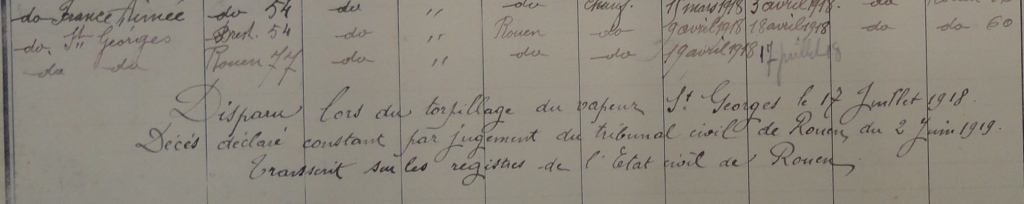 do France Aimée do 54 do " do Chauf. 11 mars 1918 3 avril 1918. do
do. St Georges Brest. 54 do " Rouen do 9 avril 1918 18 avril 1918 do do 60
do do Rouen 77 do " do do 19 avril 1918 17 juillet 18
Disparu lors du torpillage du vapeur St Georges le 17 Juillet 1918.
Décès déclaré constant par jugement du tribunal civil de Rouen, du 2 Juin 1919.
Transcrit sur les registres de l'Etat civil de Rouen,